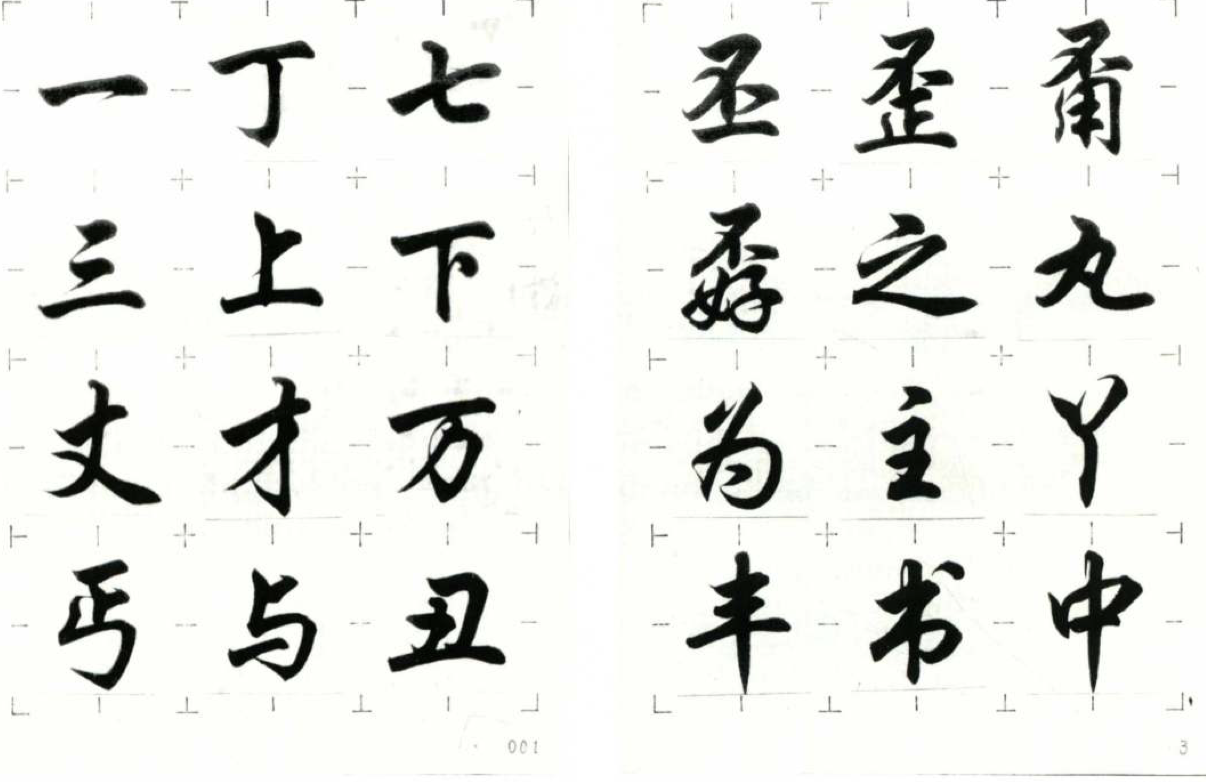 一 丁 七
三 上 下
丈 才 万
丐 与 丑
001
丕 歪 甭
孬 之 丸
为 主 丫
丰 书 中
3